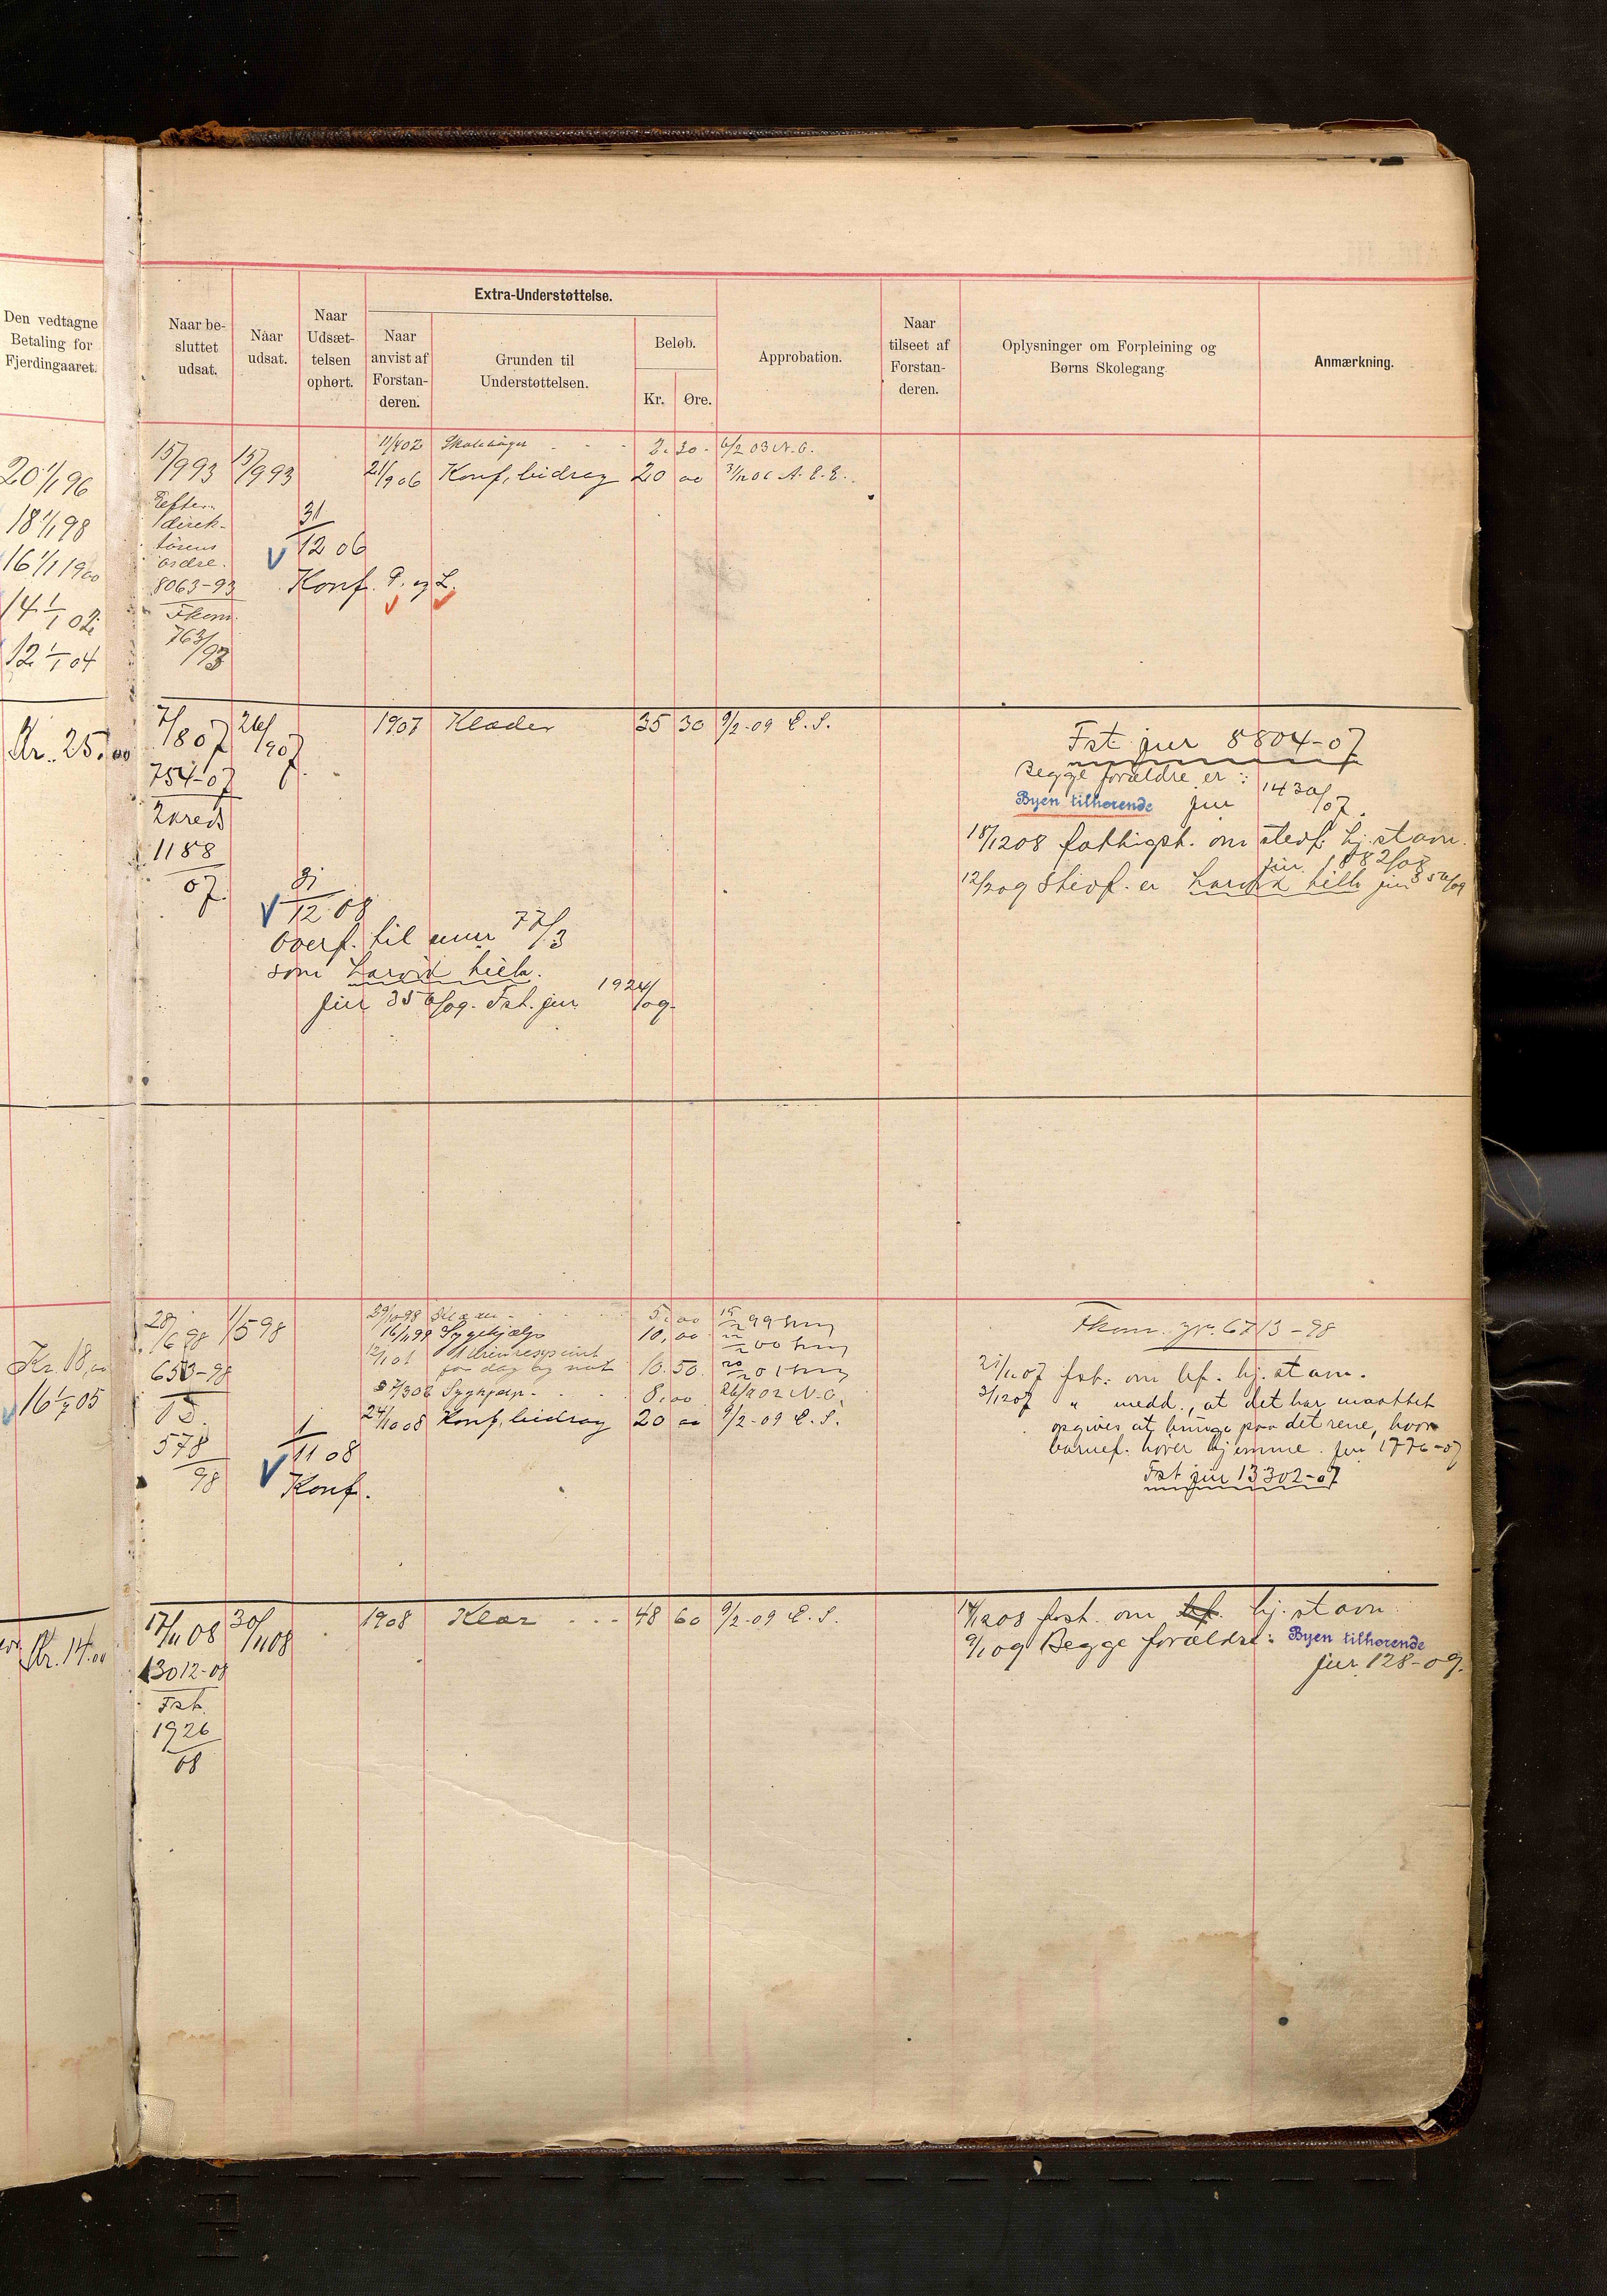 Den vedtagne
Betaling for
Fjerdingaaret.
Naar be-
sluttet
udsat.
Naar
udsat.
Naar
Udsæt-
telsen
ophørt.
Extra-Understøttelse.
Naar
anvist af
Forstan-
deren.
Grunden til
Understøttelsen.
Beløb.
Kr.
Øre.
Approbation.
Naar
tilseet af
Forstan-
deren.
Oplysninger om Forpleining og
Børns Skolegang
Anmærkning.
20 1/1 96
18 1/1 98
16 1/1 1900
14 1/1 02
12 1/1 04
15/9 93
Efter
direk-
tørens
ordre.
8063-93
Fkom.
763/93
15/9 93
31/12 06
Konf. P. og L.
11/4 02 Skolebøger 2.30. 6/2 03 N.C.
21/9 06 Konf. bidrag 20 00 31/12 06 A. E. E.
Kr. 25.00
7/8 07
754-07
2kreds
1188
07.
26/9 07
31/12 08
Overf. til mur 77/3
som Larvik tilh.
jur 356/09. Fst. jur 1924/09.
1907 Klæder 35 30 9/2-09 E. S.
Fst jur 8804-07
Begge forældre er:
Byen tilhørende jur 1430/07.
18/12 08 fattigst. om stedf. hj. stavn.
jur 1882/08
12/2 09 Stedf. er Larvik tilh jur 356/09
Kr. 18,00
16 1/7 05
28/6 98
653-98
578
98
1/5 98
1/11 08
Konf.
29/10 98 5.00
16/1 99 Sygehjælp 10,00
12/1 01
for dag og nat 10.50
8.00 26/2 02 N.C.
24/10 08 Konf. bidrag 20 00 9/2-09 E. S.
Fkom. 6713-98
21/11 07 fst. om bf. hj. stavn.
3/12 07 " medd., at det har maattet
opgives at bringe paa det rene, hvor
barnef. hører hjemme. jur 1776-07
Fst jur 13302-07
Kr. 14.00
17/11 08
13012-08
Fst.
1926
08
30/11 08
1908 Klær 48 60 9/2-09 E. S.
14/12 08 fost. om bf. hj. stavn
9/1 09 Begge forældre: Byen tilhørende
jur. 128-09.